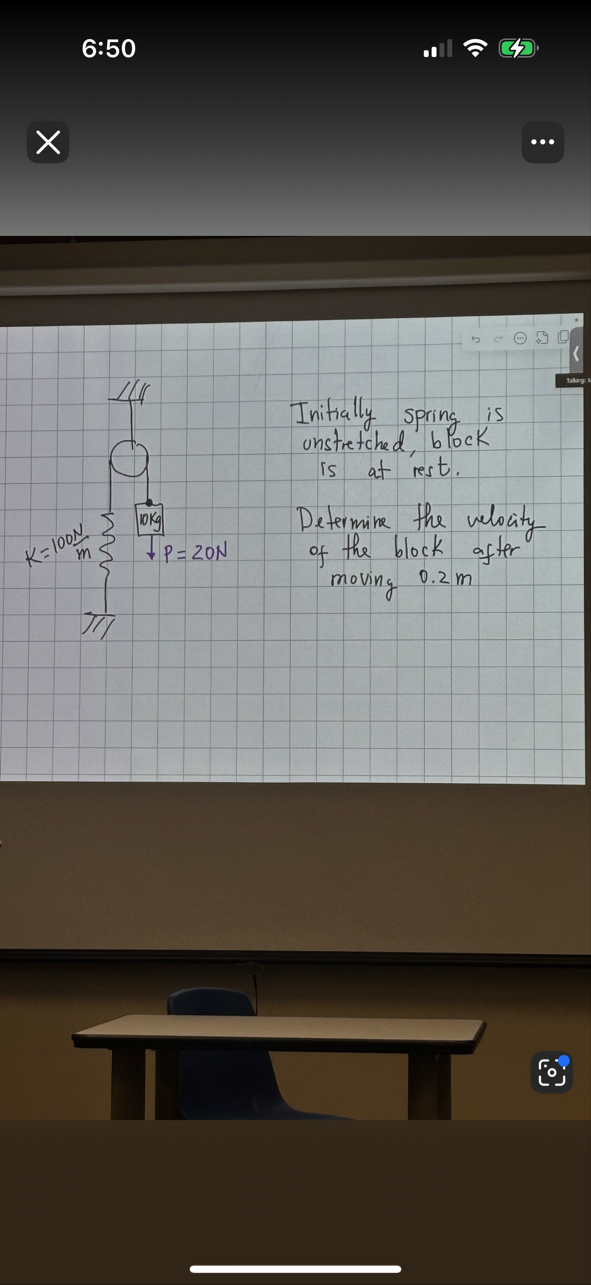 6:50
Initially spring is
unstretched, block
is at rest.
10Kg
K=100N/m
P = 20N
Determine the velocity
of the block after
moving 0.2m